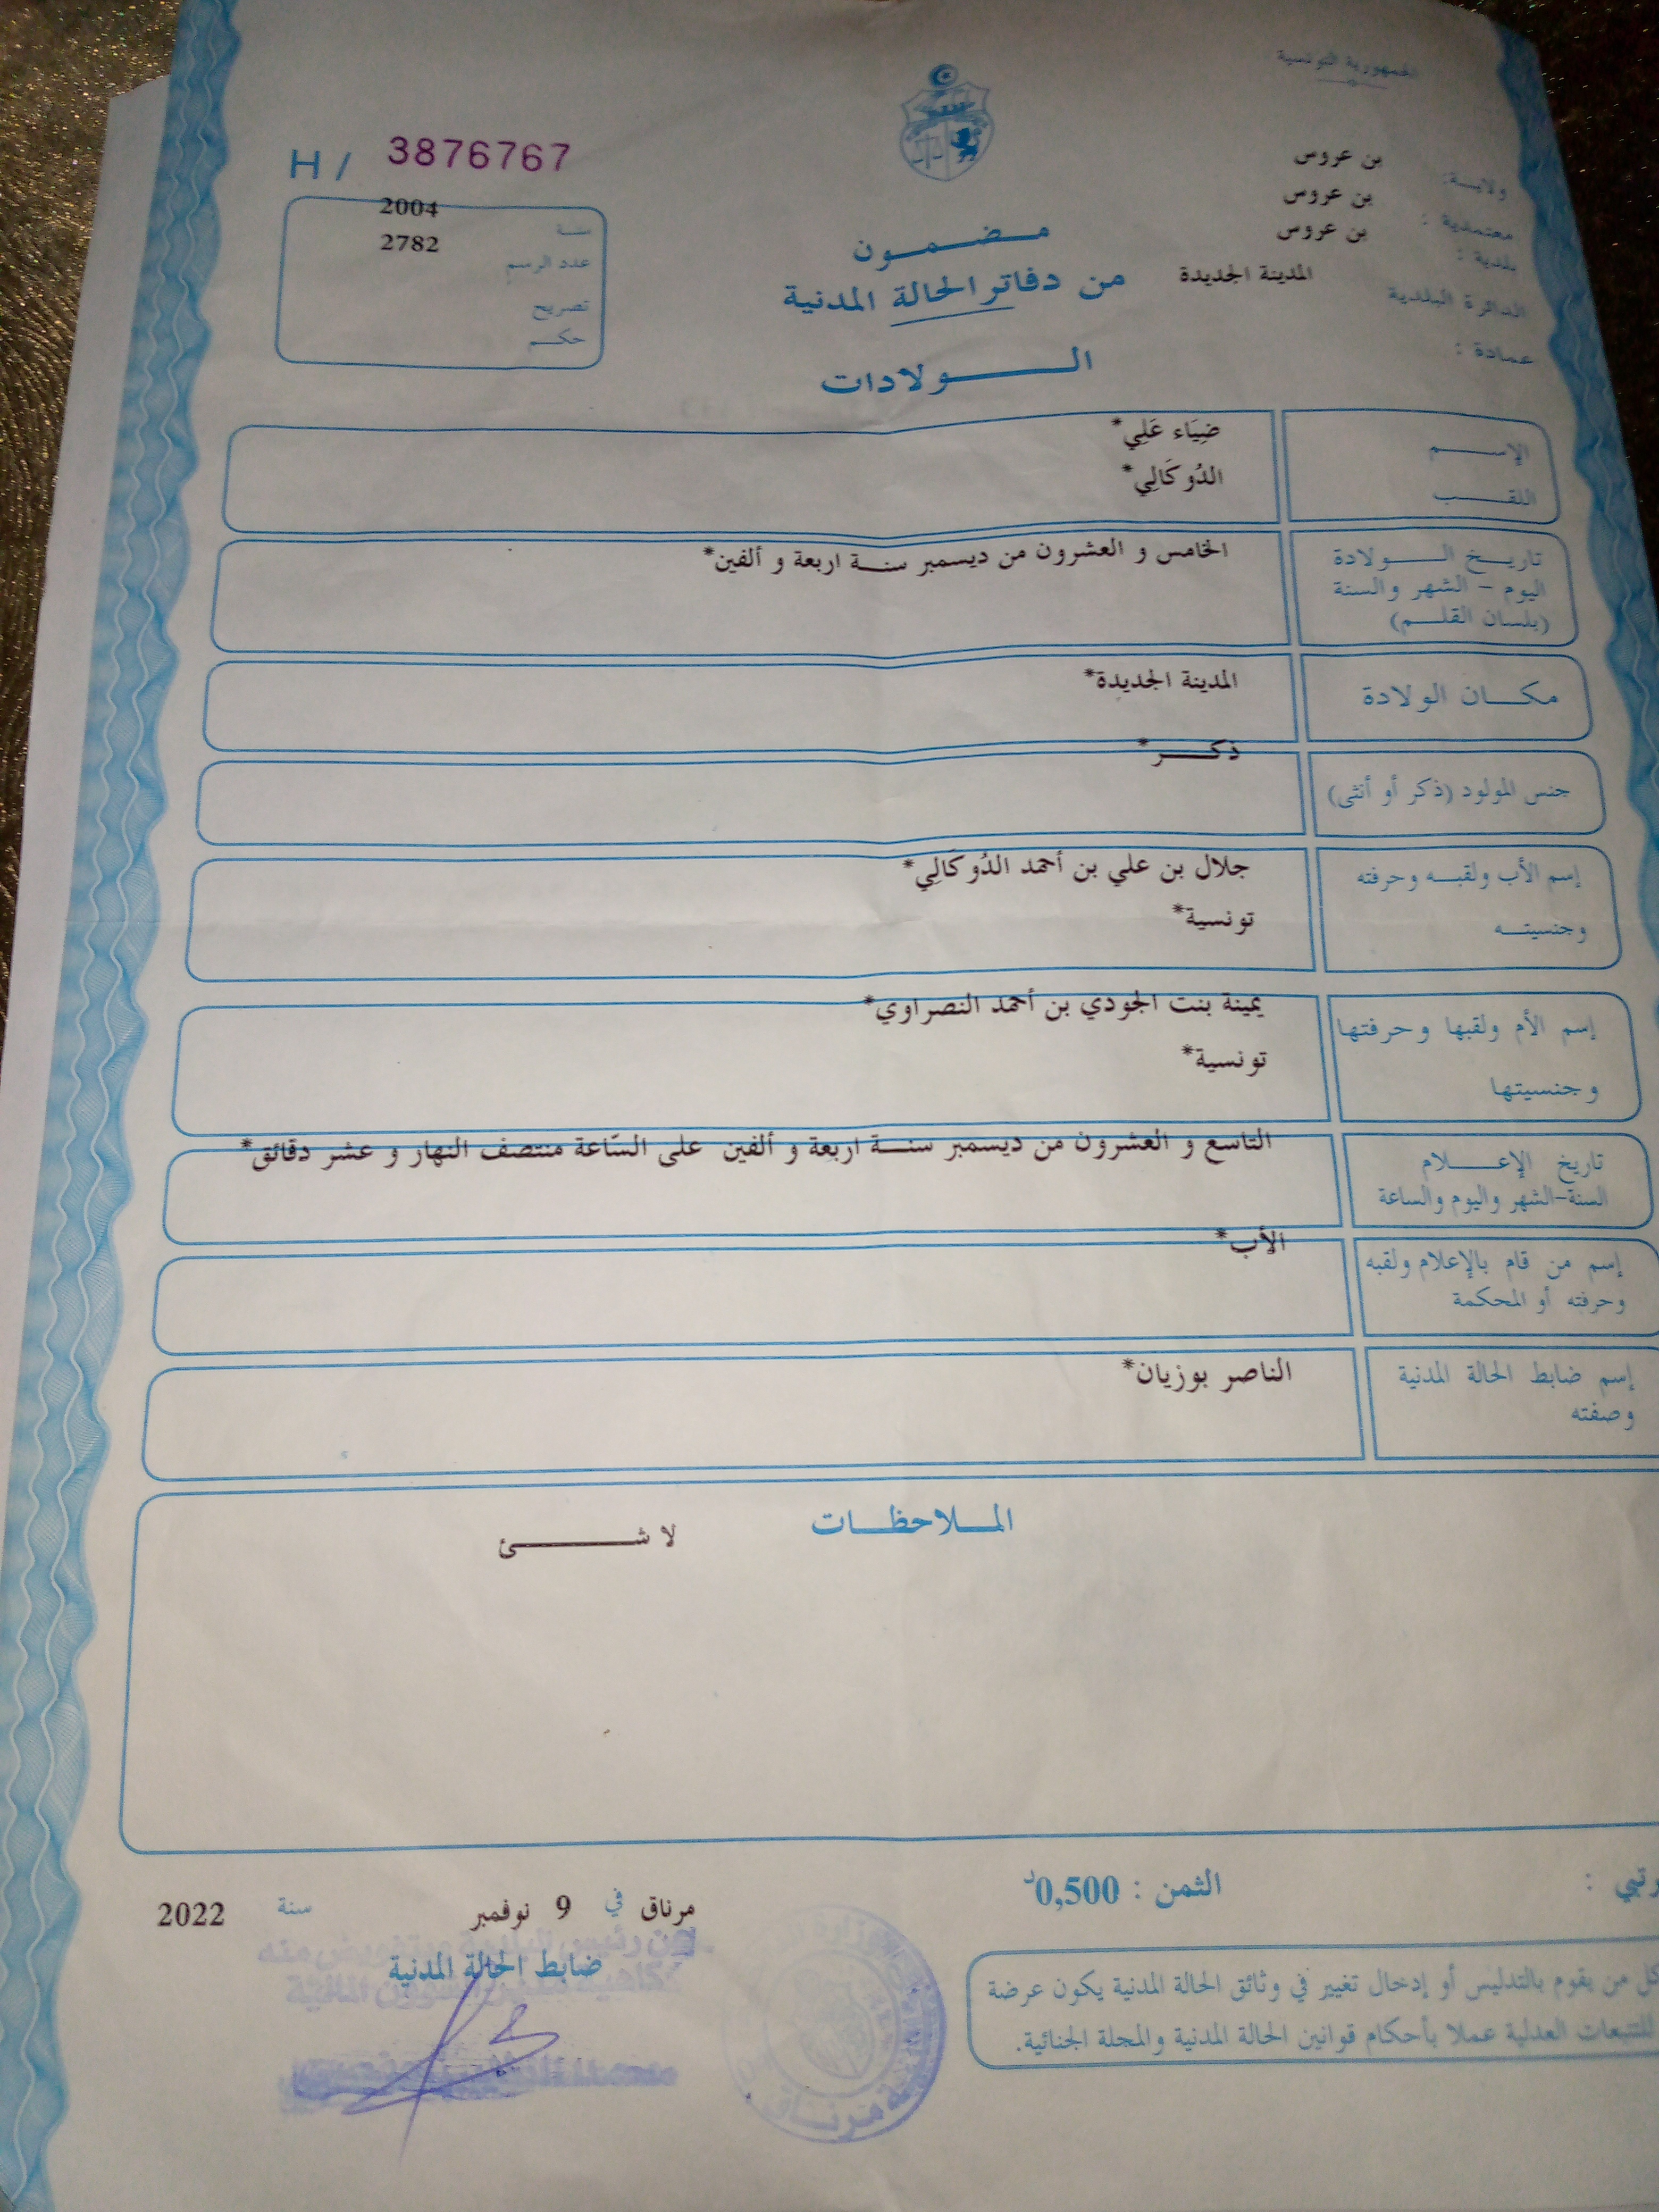 الجمهورية التونسية
ولايـــة: بن عروس
معتمدية : بن عروس
بلدية : بن عروس
الدائرة البلدية المدينة الجديدة
عمادة :
H / 3876767
سنـــة 2004
عدد الرسم 2782
تصريح
حكـــم
مـــضـــمـــون
من دفاتر الحالة المدنية
الـــــولادات
الإســـــم ضِيَاء عَلِي*
اللقـــــب الدُوكَالِي*
تاريـــخ الـــــولادة الخامس و العشرون من ديسمبر سنـــة اربعة و ألفين*
اليوم – الشهر والسنة
(بلسان القلـــم)
مكـــان الولادة المدينة الجديدة*
جنس المولود (ذكر أو أنثى) ذكـــر*
إسم الأب ولقبـــه وحرفته جلال بن علي بن أحمد الدُوكَالِي*
وجنسيتـــه تونسية*
إسم الأم ولقبها وحرفتها يمينة بنت الجودي بن أحمد النصراوي*
وجنسيتها تونسية*
تاريخ الإعـــــلام التاسع و العشرون من ديسمبر سنـــة اربعة و ألفين على السّاعة منتصف النهار و عشر دقائق*
السنة-الشهر واليوم والساعة
إسم من قام بالإعلام ولقبه الأب*
وحرفته أو المحكمة
إسم ضابط الحالة المدنية الناصر بوزيان*
وصفته
المـــلاحظـــات
لا شـــــئ
الثمن : 0,500د
مرناق في 9 نوفمبر سنة 2022
ضابط الحالة المدنية
كل من يقوم بالتدليس أو إدخال تغيير في وثائق الحالة المدنية يكون عرضة
للتتبعات العدلية عملا بأحكام قوانين الحالة المدنية والمجلة الجنائية.
مرناق